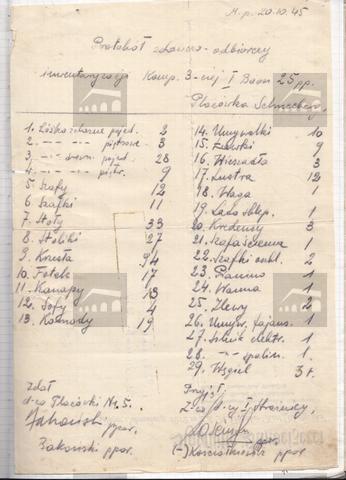 M.p. 20.10.45
Protokół zdawczo-odbiorczy
inwentaryzacji Komp. 3-ciej I Baon 25 pp.
Placówka
1. Łóżka żelazne pojed. 2
2. -- -- piętrowe 3
3. -- drewn. pojed. 28
4. -- -- piętr. 9
5. Szafy 12
6. Szafki 11
7. Stoły 33
8. Stoliki 27
9. Krzesła 94
10. Fotele 17
11. Kanapy 13
12. Sofy 4
13. Komody 19
14. Umywalki 10
15. Ławki 9
16. Wieszadła 3
17. Lustra 12
18. Waga 1
19. Lada sklep. 1
20. Kredensy 3
21. Kasa ścienna 1
22. Szafki oszkl. 2
23. Pianino 1
24. Wanna 1
25. Zlewy 2
26. Umyw. fajans. 1
27. Silnik elektr. 1
28. -- spalin. 1
29. Węgiel 3 t.
zdał
d-ca Placówki Nr. 5.
Żakowski ppor.
Przyjął
Z-ca d-cy I Strażnicy,
(-) ppor